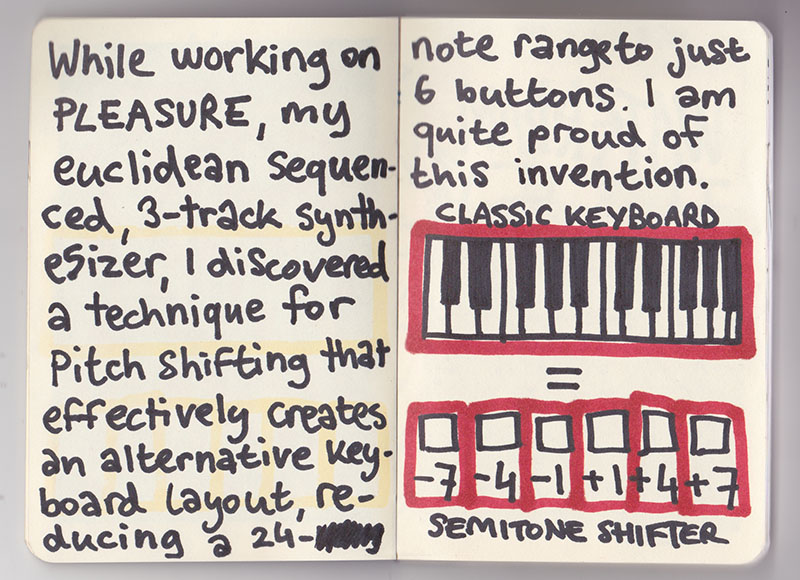 While working on
PLEASURE, my
euclidean sequen-
ced, 3-track synth-
esizer, I discovered
a technique for
pitch shifting that
effectively creates
an alternative key-
board layout, re-
ducing a 24-
note range to just
6 buttons. I am
quite proud of
this invention.
CLASSIC KEYBOARD
=
-7 -4 -1 +1 +4 +7
SEMITONE SHIFTER